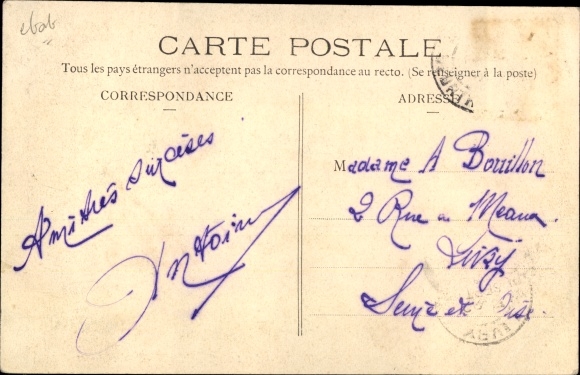 CARTE POSTALE
Tous les pays étrangers n'acceptent pas la correspondance au recto. (Se renseigner à la poste)
CORRESPONDANCE
ADRESSE
Amitiés sincères
Antoine
Madame A Bouillon
2 Rue de Meaux
Livry
Seine et Oise.